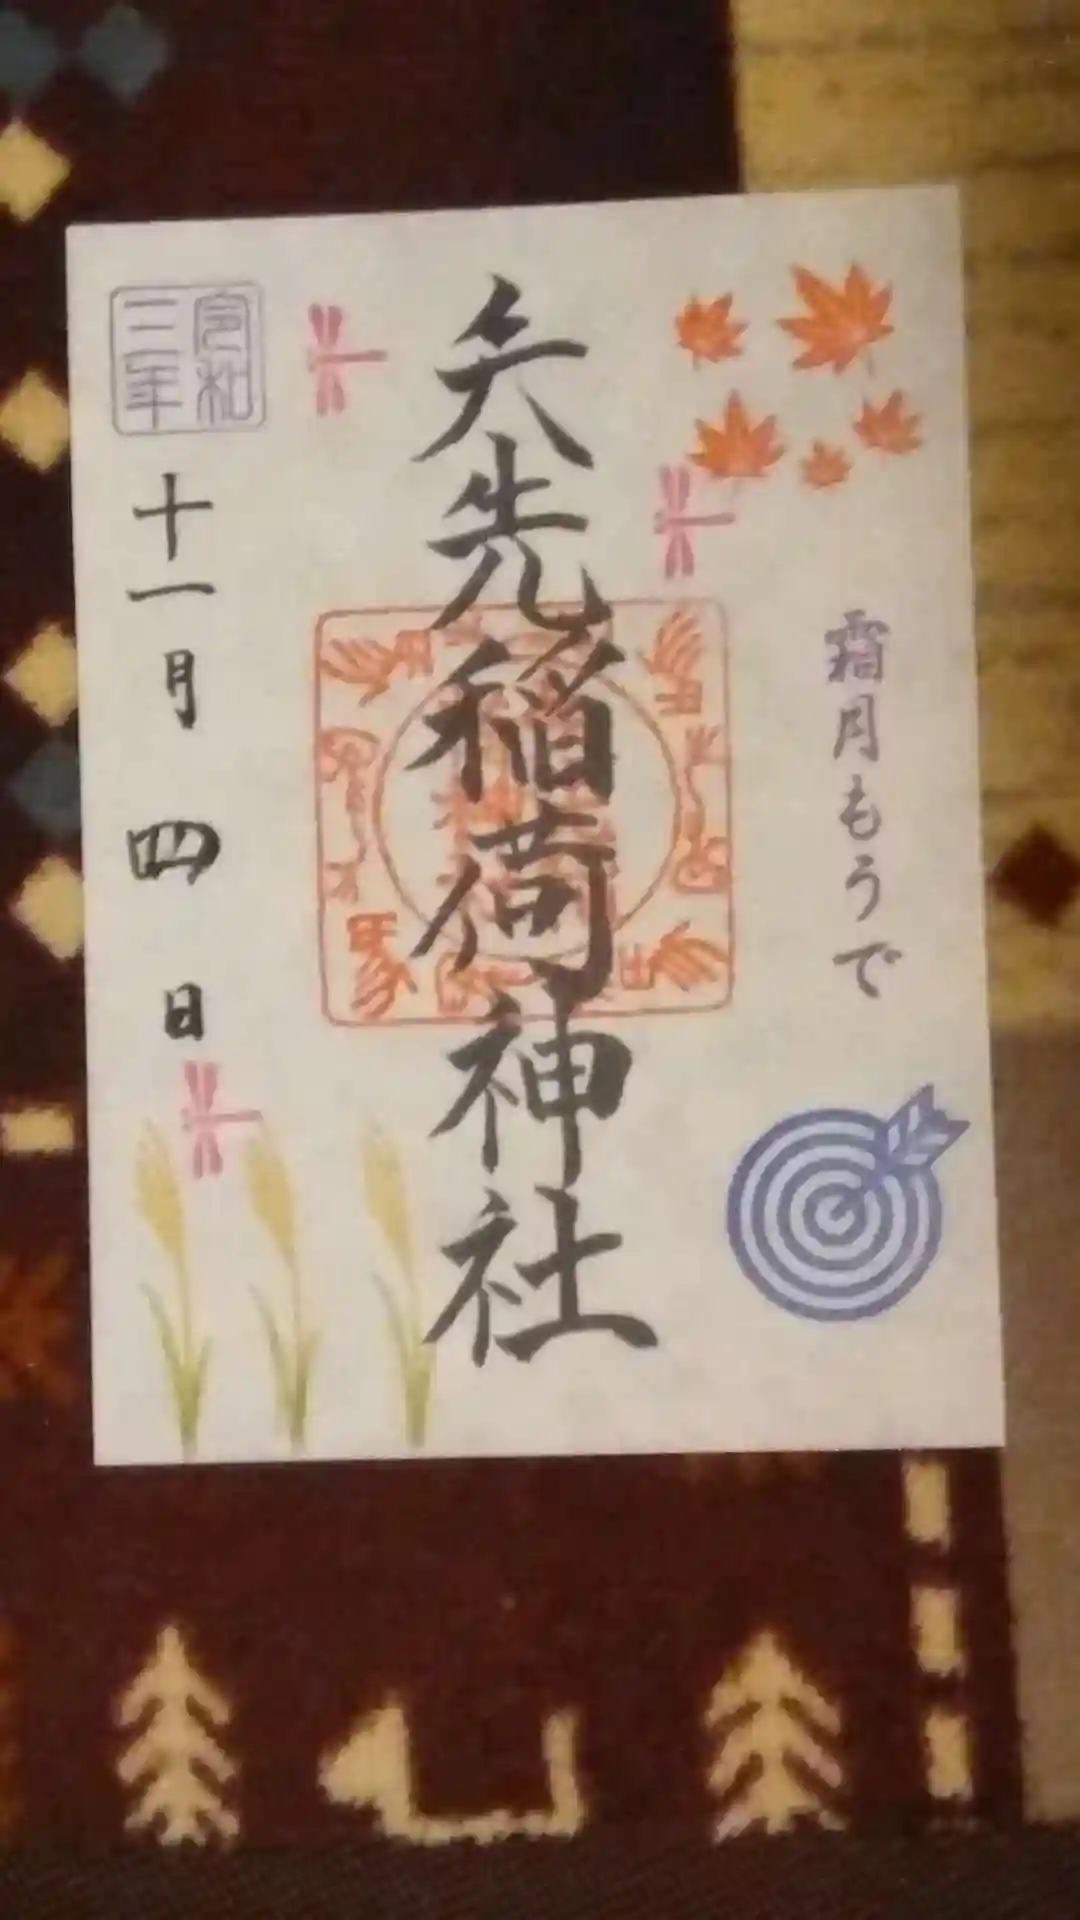 霜月もうで
矢先稲荷神社
令和三年
十一月四日